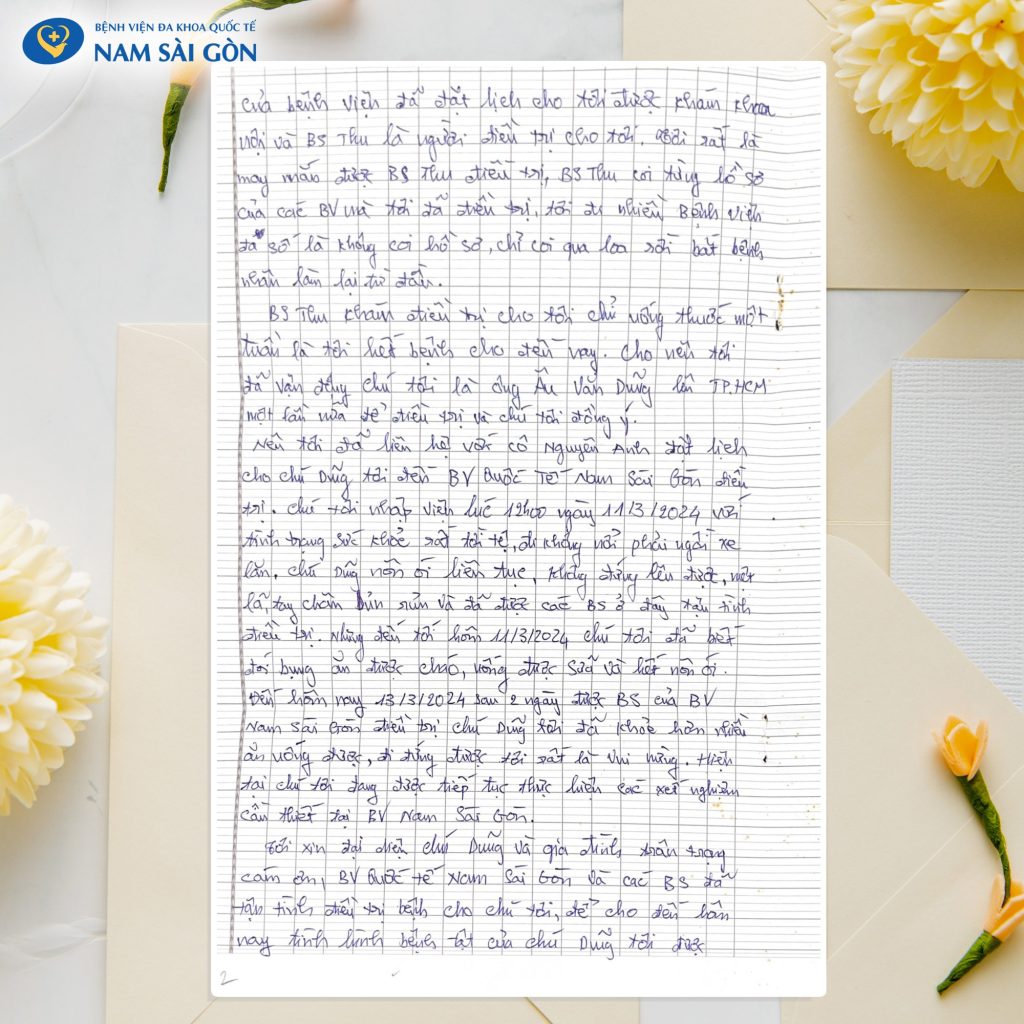 BỆNH VIỆN ĐA KHOA QUỐC TẾ
NAM SÀI GÒN
của bệnh viện đã đặt lịch cho tôi được khám khoa
nội và BS Thu là người điều trị cho tôi. Tôi rất là
may mắn được BS Thu điều trị, BS Thu coi từng hồ sơ
của các BV mà tôi đã điều trị, tôi đi nhiều Bệnh viện
đa số là không coi hồ sơ, chỉ coi qua loa rồi bắt bệnh
nhân làm lại từ đầu.
BS Thu khám điều trị cho tôi chỉ uống thuốc một
tuần là tôi hết bệnh cho đến nay. Cho nên tôi
đã vận động chú tôi là ông Âu Văn Dũng lên TP.HCM
một lần nữa để điều trị và chú tôi đồng ý.
Nên tôi đã liên hệ với cô Nguyên Anh đặt lịch
cho chú Dũng tôi đến BV Quốc Tế Nam Sài Gòn điều
trị. Chú tôi nhập viện lúc 12h00 ngày 11/3/2024 với
tình trạng sức khỏe rất tồi tệ, đi không nổi phải ngồi xe
lăn. Chú Dũng nôn ói liên tục, không đứng lên được, mệt
lã, tay chân bủn rủn và đã được các BS ở đây tận tình
điều trị. Nhưng đến tối hôm 11/3/2024 chú tôi đã biết
đói bụng ăn được cháo, uống được sữa và hết nôn ói.
Đến hôm nay 13/3/2024 sau 2 ngày được BS của BV
Nam Sài Gòn điều trị chú Dũng tôi đã khỏe hơn nhiều
ăn uống được, đi đứng được tôi rất là vui mừng. Hiện
tại chú tôi đang được tiếp tục thực hiện các xét nghiệm
cần thiết tại BV Nam Sài Gòn.
Tôi xin đại diện chú Dũng và gia đình trân trọng
cám ơn, BV Quốc tế Nam Sài Gòn và các BS đã
tận tình điều trị bệnh cho chú tôi, để cho đến hôm
nay tình hình bệnh tật của chú Dũng tôi được
2